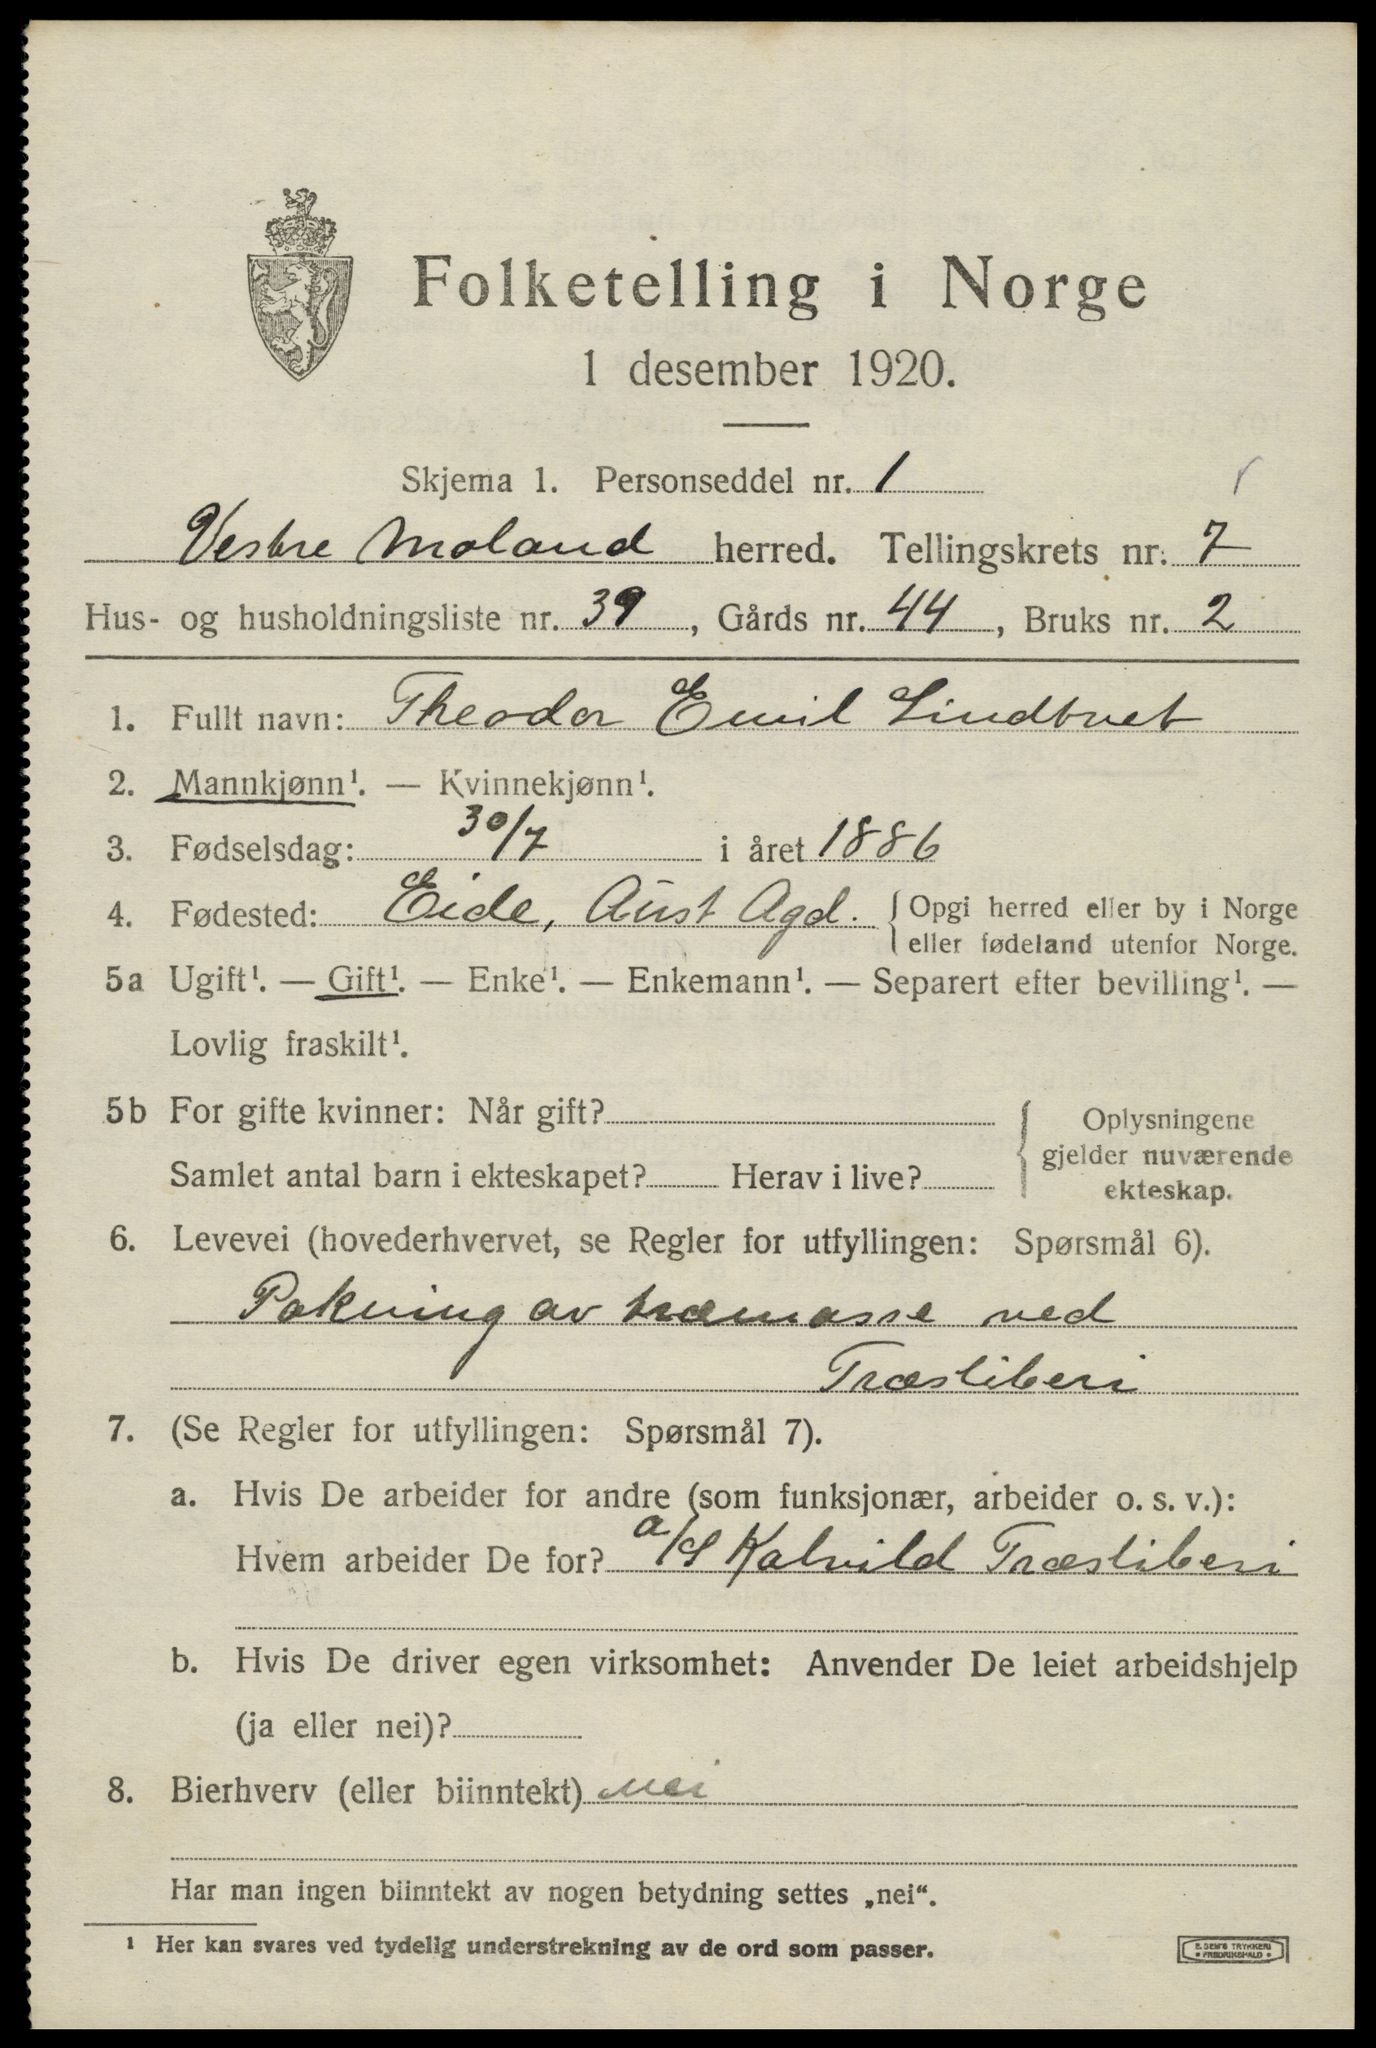 Folketelling i Norge
1 desember 1920.
Skjema 1. Personseddel nr. 1
Vestre Moland herred. Tellingskrets nr. 7
Hus- og husholdningsliste nr. 39, Gårds nr. 44, Bruks nr. 2
1. Fullt navn: Theodor Emil Lindtvet
2. Mannkjønn¹. — Kvinnekjønn¹.
3. Fødselsdag: 30/7 i året 1886
4. Fødested: Eide, Aust Agd. { Opgi herred eller by i Norge
eller fødeland utenfor Norge.
5a Ugift¹. — Gift¹. — Enke¹. — Enkemann¹. — Separert efter bevilling¹. —
Lovlig fraskilt¹.
5b For gifte kvinner: Når gift?
Samlet antal barn i ekteskapet? Herav i live?
{ Oplysningene
gjelder nuværende
ekteskap.
6. Levevei (hovederhvervet, se Regler for utfyllingen: Spørsmål 6).
Pakning av træmasse ved
Træsliberi
7. (Se Regler for utfyllingen: Spørsmål 7).
a. Hvis De arbeider for andre (som funksjonær, arbeider o. s. v.):
Hvem arbeider De for? a/S Kalvild Træsliberi
b. Hvis De driver egen virksomhet: Anvender De leiet arbeidshjelp
(ja eller nei)?
8. Bierhverv (eller biinntekt) nei
Har man ingen biinntekt av nogen betydning settes „nei“.
¹ Her kan svares ved tydelig understrekning av de ord som passer.
E. SEM'S TRYKKERI
• FREDRIKSHALD •